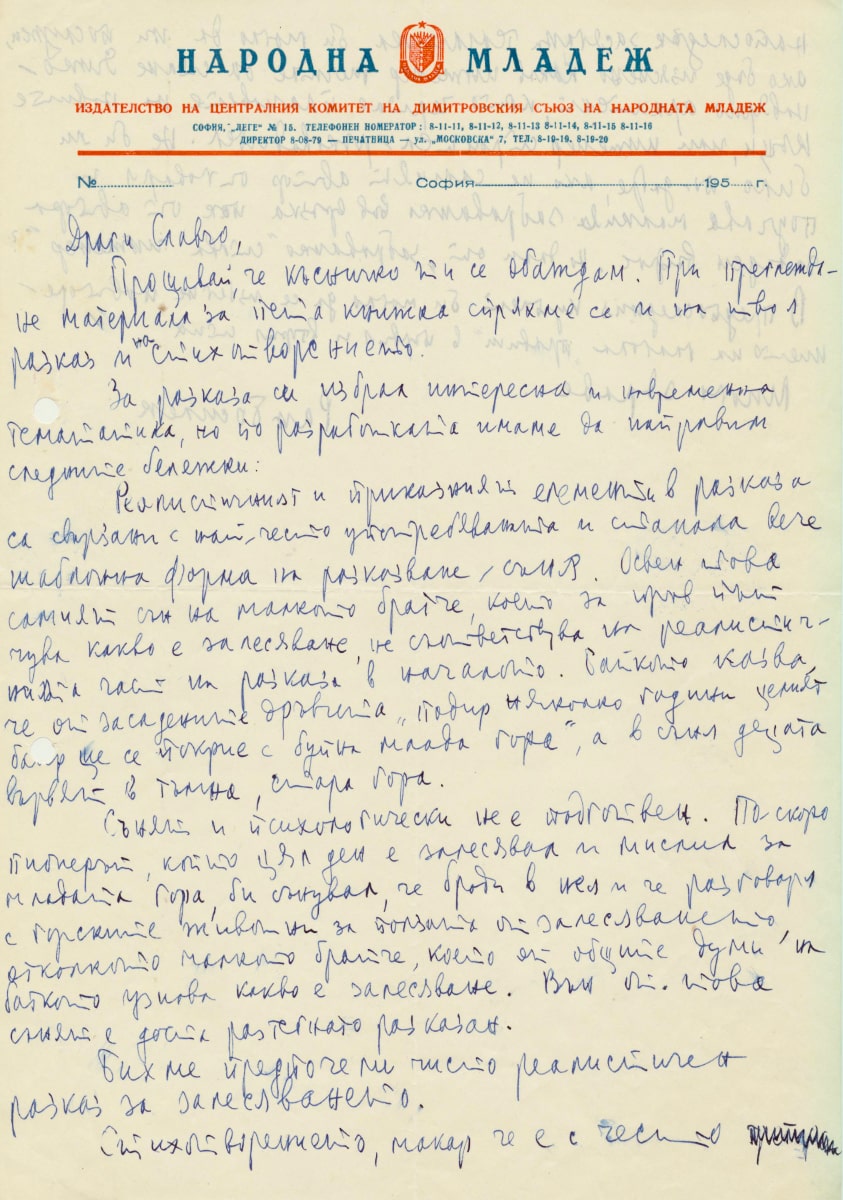 НАРОДНА МЛАДЕЖ
ИЗДАТЕЛСТВО НА ЦЕНТРАЛНИЯ КОМИТЕТ НА ДИМИТРОВСКИЯ СЪЮЗ НА НАРОДНАТА МЛАДЕЖ
СОФИЯ, „ЛЕГЕ" № 15. ТЕЛЕФОНЕН НОМЕРАТОР: 8-11-11, 8-11-12, 8-11-13 8-11-14, 8-11-15 8-11-16
ДИРЕКТОР 8-08-79 — ПЕЧАТНИЦА — ул. „МОСКОВСКА" 7, ТЕЛ. 8-19-19. 8-19-20
№ София 195 г.
Драги Славчо,
Прощавай, че късничко ти се обаждам. При прегледа-
не материала за пета книжка спряхме се и на твоя
разказ и на стихотворението.
За разказа си избрал интересна и навременна
тематика, но по разработката имаме да направим
следните бележки:
Реалистичният и приказният елементи в разказа
са свързани с най-често употребяваната и станала вече
шаблонна форма на разказване – съня. Освен това
самият сън на малкото братче, което за пръв път
чува какво е залесяване, не съответствува на реалистич-
ната част на разказа в началото. Баткото казва,
че от засадените дръвчета „подир няколко години целият
баир ще се покрие с буйна млада гора", а в съня децата
вървят в тъмна, стара гора.
Сънят и психологически не е подготвен. По-скоро
пионерът, който цял ден е залесявал и мислил за
младата гора, би сънувал, че броди в нея и че разговаря
с горските животни за ползата от залесяването,
отколкото малкото братче, което от общите думи на
баткото узнава какво е залесяване. Вън от това
сънят е доста разтегнато разказан.
Бихме предпочели чисто реалистичен
разказ за залесяването.
Стихотворението, макар че е с често